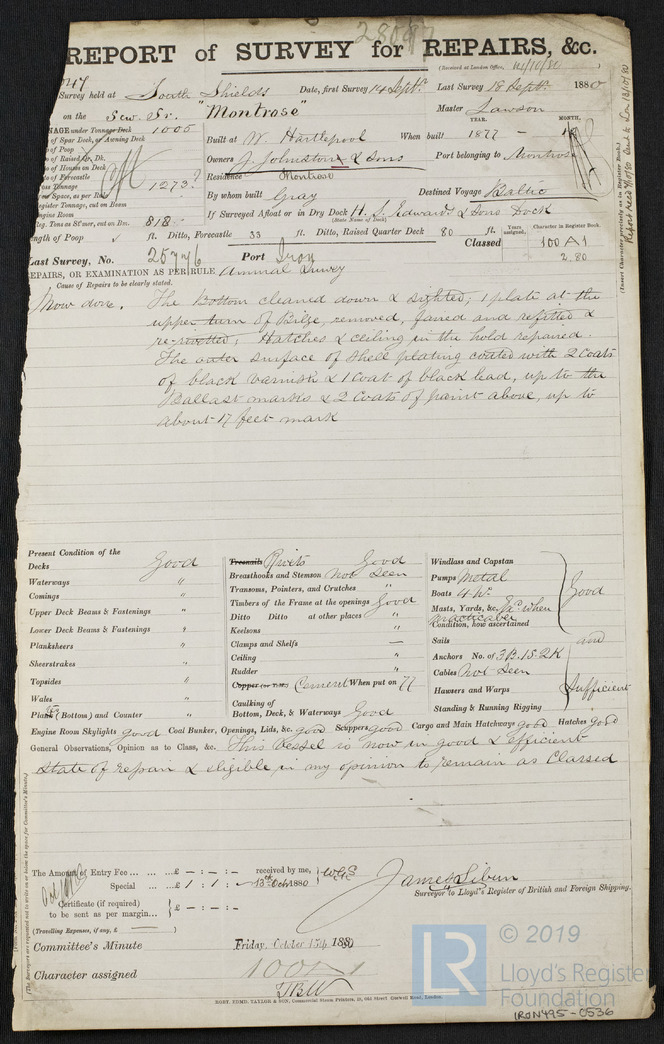 REPORT of SURVEY for REPAIRS, &c.
28097
(Received at London Office, 14/10/80)
Survey held at South Shields Date, first Survey 14 Septr. Last Survey 18 Septr. 1880
on the Scw. Sr. "Montrose" Master Lawson
NAGE under Tonnage Deck 1005
of Spar Deck, or Awning Deck
of Poop
of Raised Qr. Dk.
of Houses on Deck
of Forecastle
Gross Tonnage 1273?
Built at W. Hartlepool When built YEAR. 1877 MONTH.
Owners J. Johnston & Sons Port belonging to Montrose
Residence Montrose
By whom built Gray Destined Voyage Baltic
Engine Room
Reg. Tons as St'mer, cut on Bm. 818
If Surveyed Afloat or in Dry Dock H. S. Edwards & Sons Dock
(State Name of Dock)
Length of Poop ft. Ditto, Forecastle 33 ft. Ditto, Raised Quarter Deck 80 ft.
Years assigned. Character in Register Book.
Classed 100 A1
2.80
Last Survey, No. 25776 Port Iron
REPAIRS, OR EXAMINATION AS PER RULE Annual Survey
Cause of Repairs to be clearly stated.
Now done. The Bottom cleaned down & sighted; 1 plate at the
upper turn of Bilge, removed, faired and refitted &
re-rivetted; Hatches & ceiling in the hold repaired.
The outer surface of Shell plating coated with 2 Coats
of black varnish & 1 Coat of black lead, up to the
Ballast marks & 2 Coats of paint above, up to
about 17 feet mark
Present Condition of the
Decks Good
Waterways "
Comings "
Upper Deck Beams & Fastenings "
Lower Deck Beams & Fastenings "
Planksheers "
Sheerstrakes "
Topsides "
Wales "
Plank (Bottom) and Counter "
Treenails Rivets Good
Breasthooks and Stemson Not Seen
Transoms, Pointers, and Crutches "
Timbers of the Frame at the openings Good
Ditto Ditto at other places "
Keelsons "
Clamps and Shelfs —
Ceiling "
Rudder "
Copper (or Y.M.) Cement When put on 77
Caulking of
Bottom, Deck, & Waterways Good
Windlass and Capstan
Pumps Metal
Boats 4 No.
Masts, Yards, &c. when
practicable
Condition, how ascertained
Sails
Anchors No. of 3B. 1S. 2K
Cables Not Seen
Hawsers and Warps
Standing & Running Rigging
Good
and
Sufficient
Engine Room Skylights Good Coal Bunker, Openings, Lids, &c. good Scuppers good Cargo and Main Hatchways good Hatches Good
General Observations, Opinion as to Class, &c. This Vessel is now in good & efficient
state of repair & eligible in my opinion to remain as Classed
The Amount of Entry Fee ... ... ...£ - : - : - received by me,
Special ... ...£ 1 : 1 : - 13th Oct 1880
Certificate (if required)
to be sent as per margin... £ - : - : -
(Travelling Expenses, if any, £ ———)
James Sibun
Surveyor to Lloyd's Register of British and Foreign Shipping.
Committee's Minute Friday, October 15th 1880
Character assigned 100A1
ROBT. EDMD. TAYLOR & SON, Commercial Steam Printers, 19, Old Street, Goswell Road, London.
© 2019
LR
Lloyd's Register
Foundation
IRON495-0536